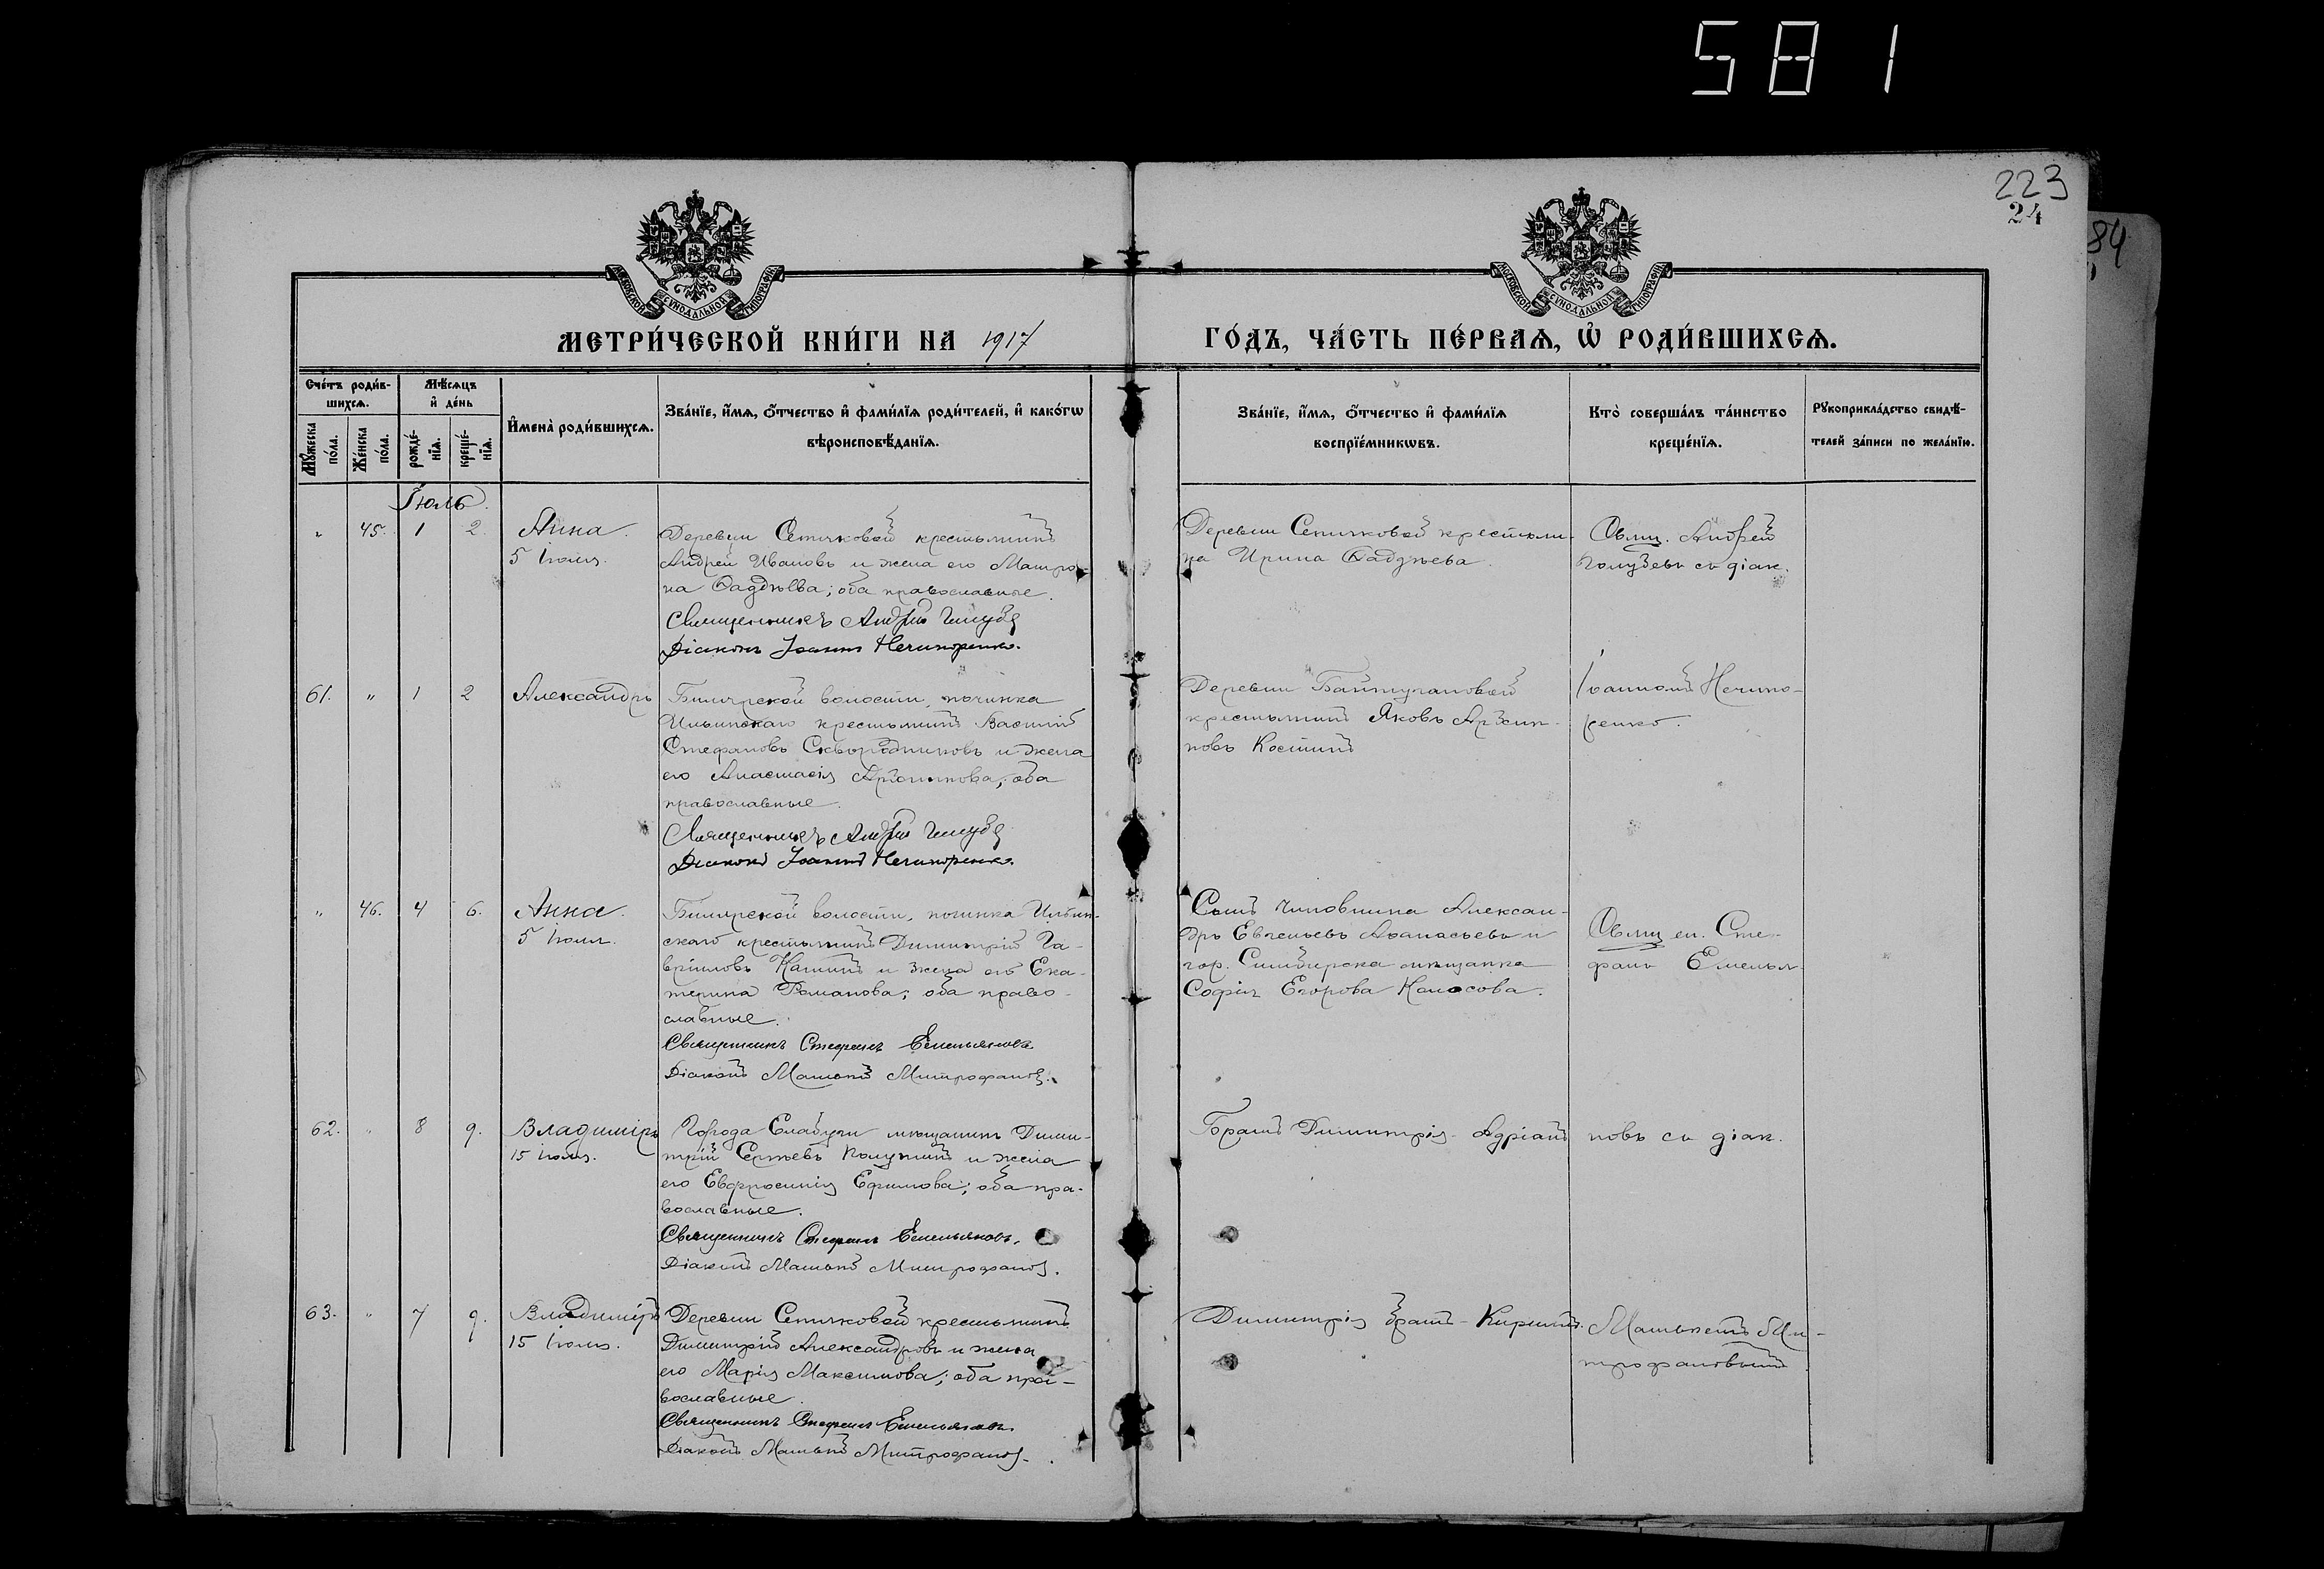 581
223
24
84
МОСКОВСКОЙ СѴНОДАЛЬНОЙ ТИПОГРАФІИ
МОСКОВСКОЙ СѴНОДАЛЬНОЙ ТИПОГРАФІИ
МЕТРИ́ЧЕСКОЙ КНИ́ГИ НА 1917 ГО́ДЪ, ЧА́СТЬ ПЕ́РВАѦ, Ѡ҆ РОДИ́ВШИХСѦ.
Сче́тъ роди́в-
шихсѧ.
Мѣ́сѧцъ
и҆ де́нь
Мꙋ́жеска
по́ла.
Же́нска
по́ла.
рожде́-
нїѧ.
креще́-
нїѧ.
И҆мена̀ роди́вшихсѧ.
Зва́нїе, и҆́мѧ, ѻ҆́тчество и҆ фами́лїѧ роди́телей, и҆ како́гѡ
вѣроисповѣ́данїѧ.
Зва́нїе, и҆́мѧ, ѻ҆́тчество и҆ фами́лїѧ
воспрїе́мникѡвъ.
Кто̀ соверша́лъ та́инство
креще́нїѧ.
Рꙋкоприкла́дство свидѣ́-
телей за́писи по жела́нїю.
Іюль.
" 45. 1 2. Анна.
5 Іюля.
Деревни Сетяковой крестьянинъ
Андрей Ивановъ и жена его Матро-
на Ѳаддѣева; оба православные.
Священникъ Андрей Голубев
Діаконъ Іоаннъ Нечипоренко.
Деревни Сетяковой крестьян-
ка Ирина Ѳаддѣева.
Свящ. Андрей
Голубевъ съ діак.
61. " 1 2 Александръ
Билярской волости, починка
Ильинскаго крестьянинъ Василій
Стефановъ Сковородниковъ и жена
его Анастасія; оба
православные.
Священникъ Андрей Голубев
Діаконъ Іоаннъ Нечипоренко.
Деревни Баймугановой
крестьянинъ Яковъ
новъ Костинъ
Іоанномъ Нечипо-
ренко.
" 46. 4 6. Анна.
5 Іюля.
Билярской волости, починка Ильин-
скаго крестьянинъ Димитрій Га-
вріиловъ и жена его Ека-
терина Романова; оба право-
славные.
Священникъ Стефанъ Емельяновъ
Діаконъ Митрофанов.
Сынъ чиновника Алексан-
дръ Евгеньевъ Аѳанасьевъ и
гор. Симбирска мѣщанка
Софія Егорова Колосова.
Свящ. Сте-
фанъ Емелья-
62. " 8 9. Владиміръ
15 Іюля.
Города Елабуги мѣщанинъ Дими-
трій Сергѣевъ и жена
его Евфросинія Ефимова; оба пра-
вославные.
Священникъ Стефанъ Емельяновъ.
Діаконъ Митрофанов.
Братъ Димитрія - Адріанъ
новъ съ діак.
63. " 7 9. Владиміръ
15 Іюля.
Деревни Сетяковой крестьянинъ
Димитрій Александровъ и жена
его Марія Максимова; оба пра-
вославные.
Священникъ Стефанъ Емельяновъ
Діаконъ Митрофанов.
Димитрія братъ - Кириллъ.
Ми-
трофановымъ